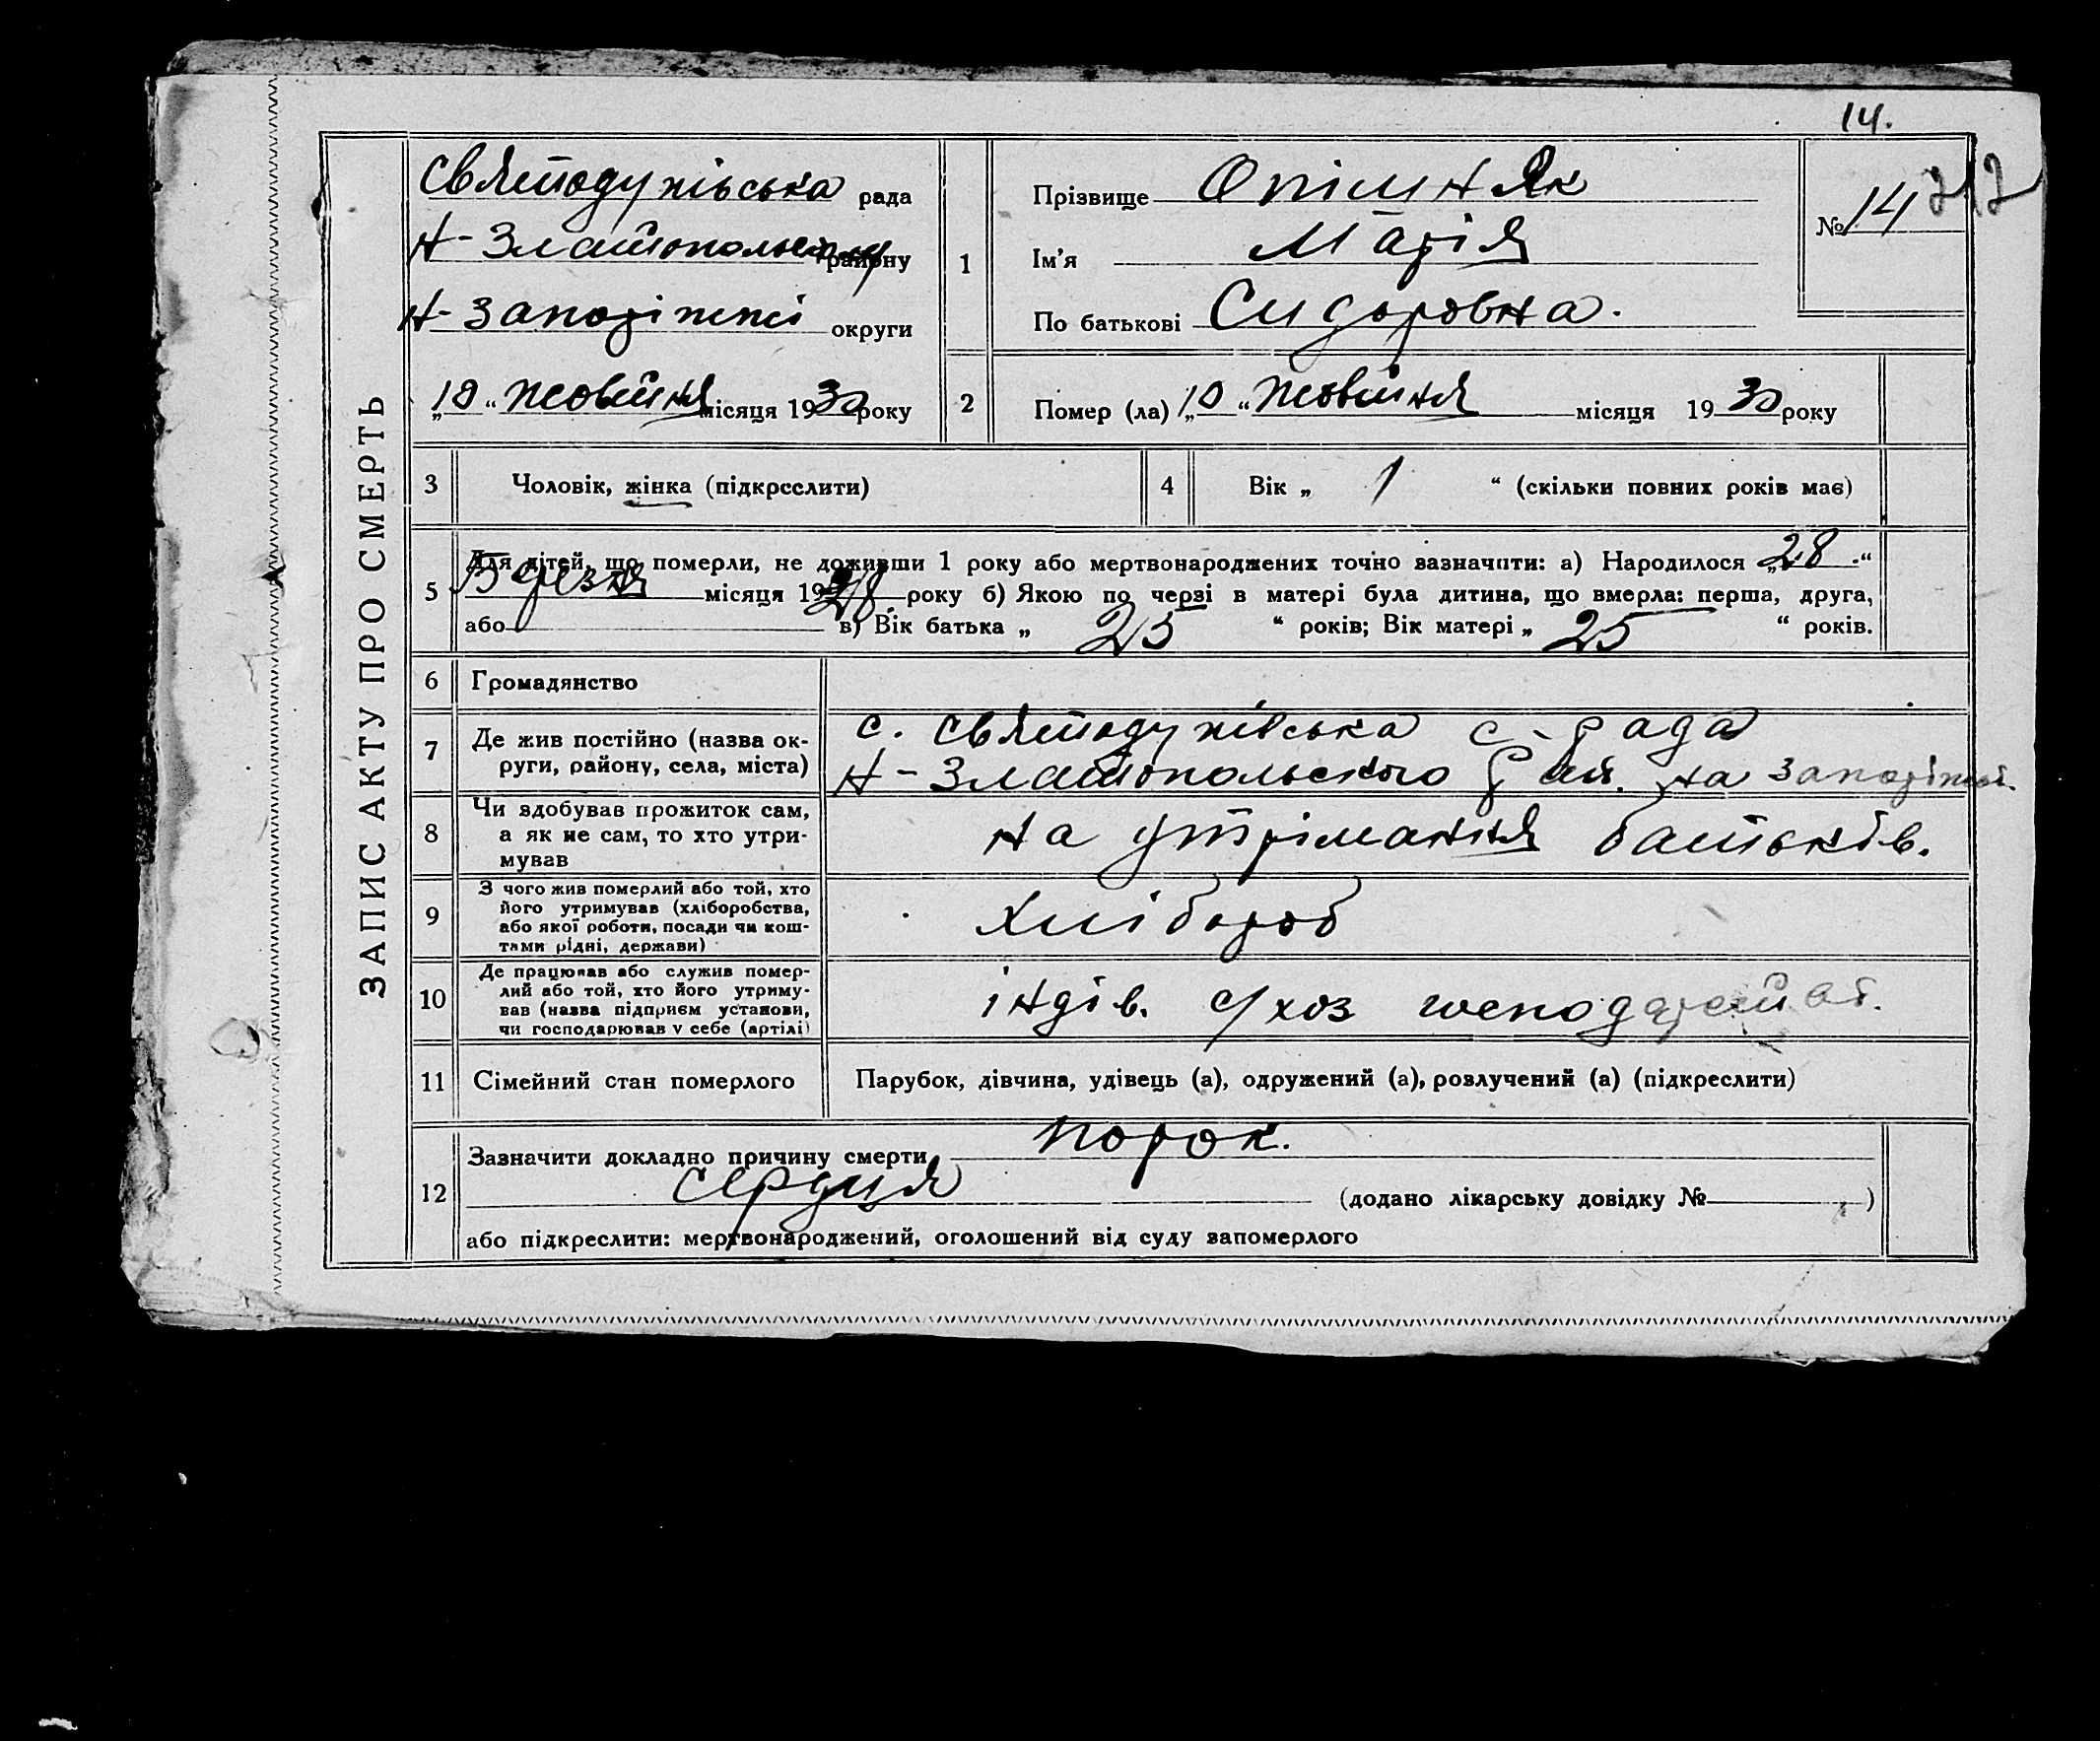 14.
ЗАПИС АКТУ ПРО СМЕРТЬ
Святодухівська рада
Н-Златопольську району
Н-Запоріжжі округи
„10“ жовтня місяця 1930 року
1 Прізвище Опішняк
Ім'я Марія
По батькові Сидоровна.
№ 14
2 Помер (ла) „10“ жовтня місяця 1930 року
3 Чоловік, жінка (підкреслити)
4 Вік „ 1 “ (скільки повних років має)
5 Для дітей, що померли, не доживши 1 року або мертвонароджених точно зазначити: а) Народилося „28.“
Березня місяця 19 року б) Якою по черзі в матері була дитина, що вмерла: перша, друга,
або в) Вік батька „ 25 “ років; Вік матері „ 25 “ років.
6 Громадянство
7 Де жив постійно (назва ок-
руги, району, села, міста)
с. Святодухівська с-рада
Н-Златопольского рай. на Запоріжжі.
8 Чи здобував прожиток сам,
а як не сам, то хто утри-
мував
на утрімання батьків.
9 З чого жив померлий або той, хто
його утримував (хліборобства,
або якої роботи, посади чи кош-
тами рідні, держави)
Хлібороб
10 Де працював або служив помер-
лий або той, хто його утриму-
вав (назва підприєм установи,
чи господарював у себе (артілі)
індів. с/хоз
11 Сімейний стан померлого
Парубок, дівчина, удівець (а), одружений (а), розлучений (а) (підкреслити)
12 Зазначити докладно причину смерти порок.
сердця (додано лікарську довідку № )
або підкреслити: мертвонароджений, оголошений від суду запомерлого